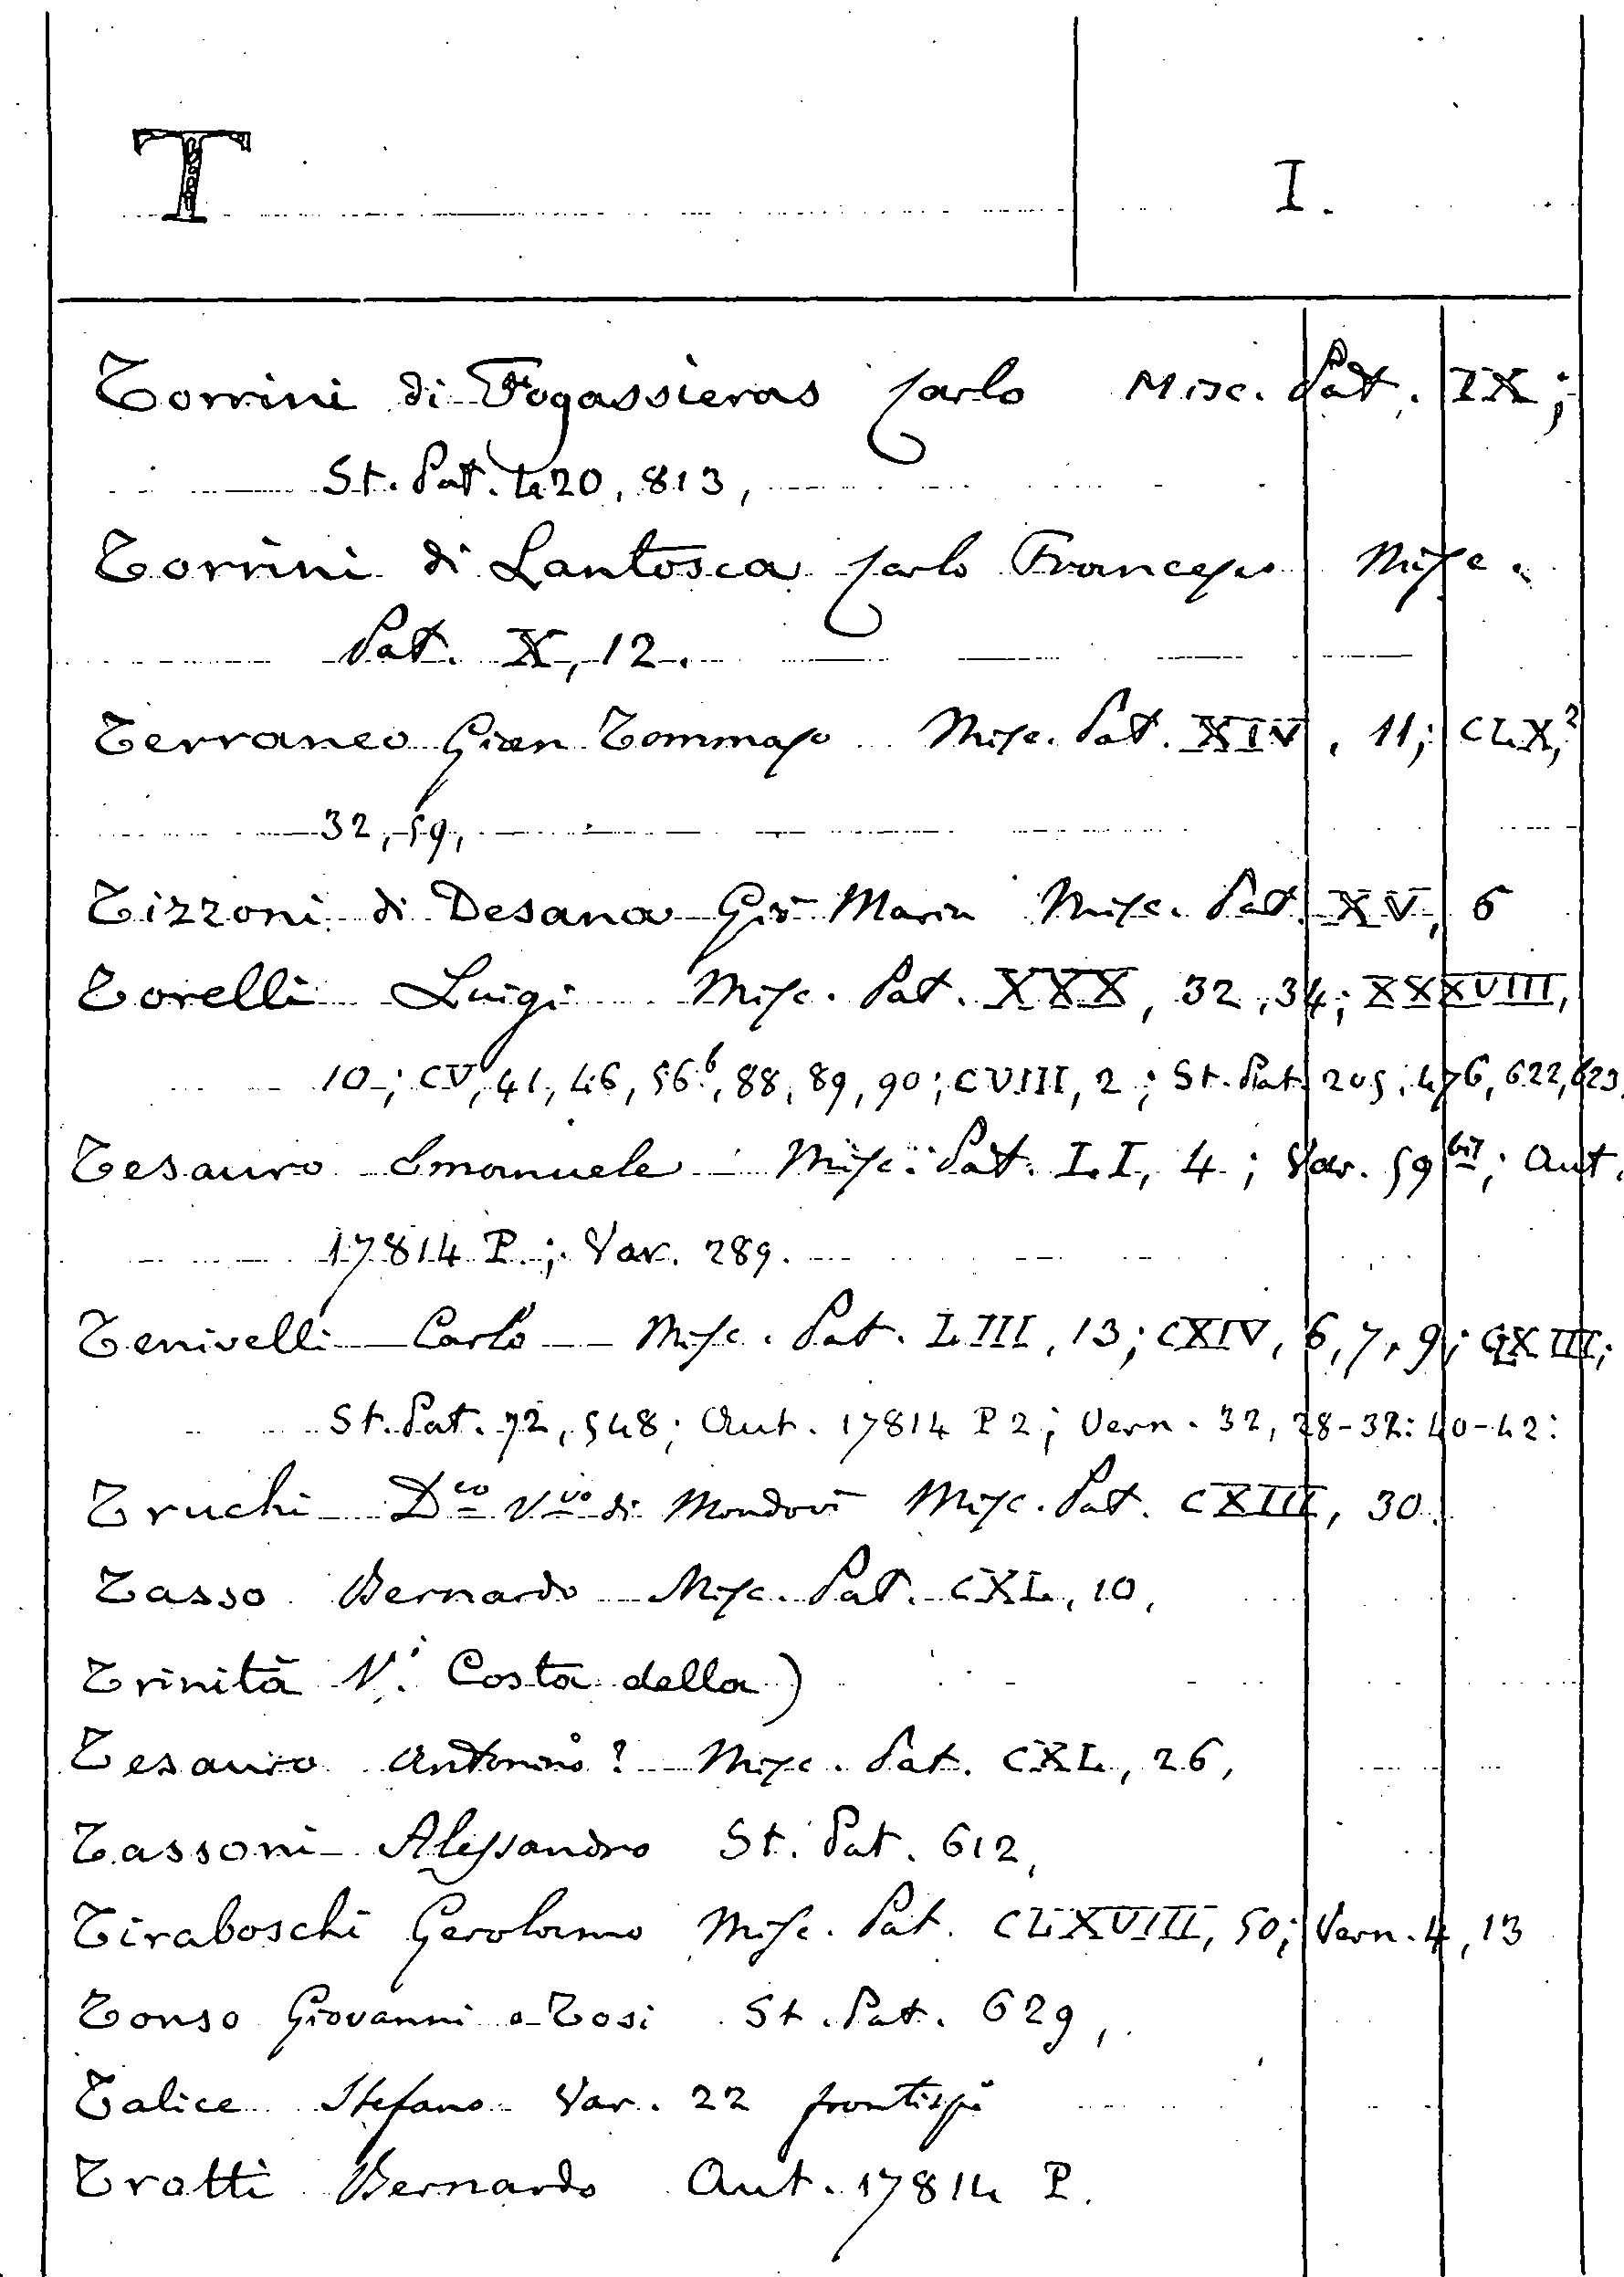 T
I.
Torrini di Fogassieras Carlo Misc. Pat. IX;
St. Pat. 420, 813,
Torrini di Lantosca Carlo Francesco Misc.
Pat. X, 12.
Terraneo Gian Tommaso Misc. Pat. XIV, 11; CLX,²
32, 59,
Tizzoni di Desana Giõ Maria Misc. Pat. XV, 6
Torelli Luigi Misc. Pat. XXX, 32, 34; XXXVIII,
10; CV, 41, 46, 56ᵇ, 88, 89, 90; CVIII, 2; St. Pat. 205, 476, 622, 623,
Tesauro Emanuele Misc. Pat. LI, 4; Var. 59 bis; Aut.
17814 P.; Var. 289.
Tenivelli Carlo Misc. Pat. LIII, 13; CXIV, 6, 7, 9; CLXIII;
St. Pat. 72, 548; Aut. 17814 P 2; Vern. 32, 28-32: 40-42:
Truchi Dco Vvo di Mondovì Misc. Pat. CXIII, 30.
Tasso Bernardo Misc. Pat. CXL, 10,
Trinità V. Costa della)
Tesauro Antonino? Misc. Pat. CXL, 26,
Tassoni Alessandro St. Pat. 612,
Tiraboschi Gerolamo Misc. Pat. CLXVIII, 50; Vern. 4, 13
Tonso Giovanni o Tosi St. Pat. 629,
Talice Stefano Var. 22 frontisp
Trotti Bernardo Aut. 17814 P.